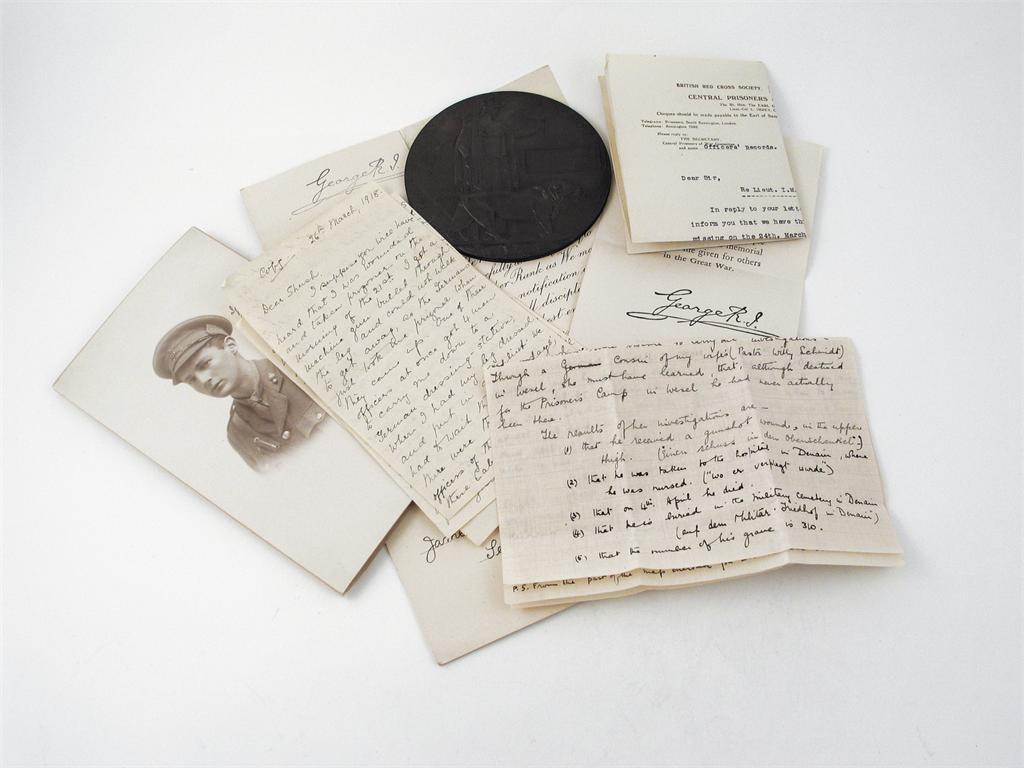 BRITISH RED CROSS SOCIETY
CENTRAL PRISONERS
The Rt. Hon. The EARL
Cheques should be made payable to the Earl of
Telegrams: Prisoners, South Kensington, London.
Telephone: Kensington
Please reply to:
THE SECRETARY,
Central Prisoners of War Committee,
and name Officers' Records.
Dear Sir,
Re Lieut. I.M.
In reply to your lett
inform you that we have th
missing on the 24th. March
memorial
given for others
in the Great War.
George R.I.
George R.I.
or Rank as
notification
discipl
Copy
26th March, 1918.
Dear Shush
I suppose you will have
heard that I was wounded
and taken prisoner on the
morning of the 21st. I got a
machine gun bullet through
the leg and could not walk
to get away, so the Germans
just took me prisoner when
they came up. One of their
officers at once got 4 men
to carry me down to a
German dressing station
where I had my leg dressed
and put in
had to wait
there were
officers of the
these
through a German cousin of my wife's (Pastor Willy Schmidt)
in Wesel, she must have learned, that, although destined
for the Prisoners' Camp in Wesel he had never actually
been there.
The results of her investigations are —
(1) that he received a gunshot wound, in the upper
thigh. (einen schuss in den Oberschenkel)
(2) that he was taken to the hospital in Denain, where
he was nursed. ("wo er verpflegt wurde)
(3) that on 4th April he died.
(4) that he is buried in the military cemetery in Denain
(auf dem Militär-Friedhof in Denain)
(5) that the number of his grave is 310.
P.S. From the part of the map